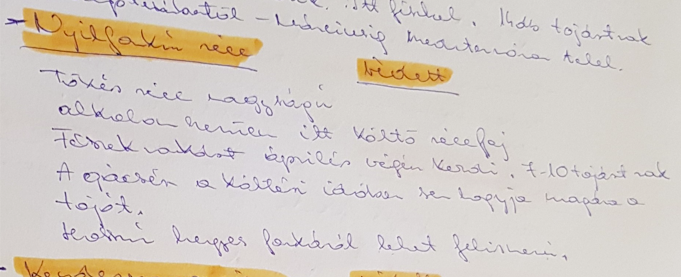 itt fészkel. 14 db tojást rak
- Márciusig mediterránon telel.
- Nyílfarkú réce védett
Tőkés réce nagyságú
alkalomszerűen itt költő récefaj
Fészekrakást április végén kezdi. 7-10 tojást rak
A gácsér a költési időben sem hagyja magára a
tojót.
hosszú hegyes farkáról lehet felismerni.